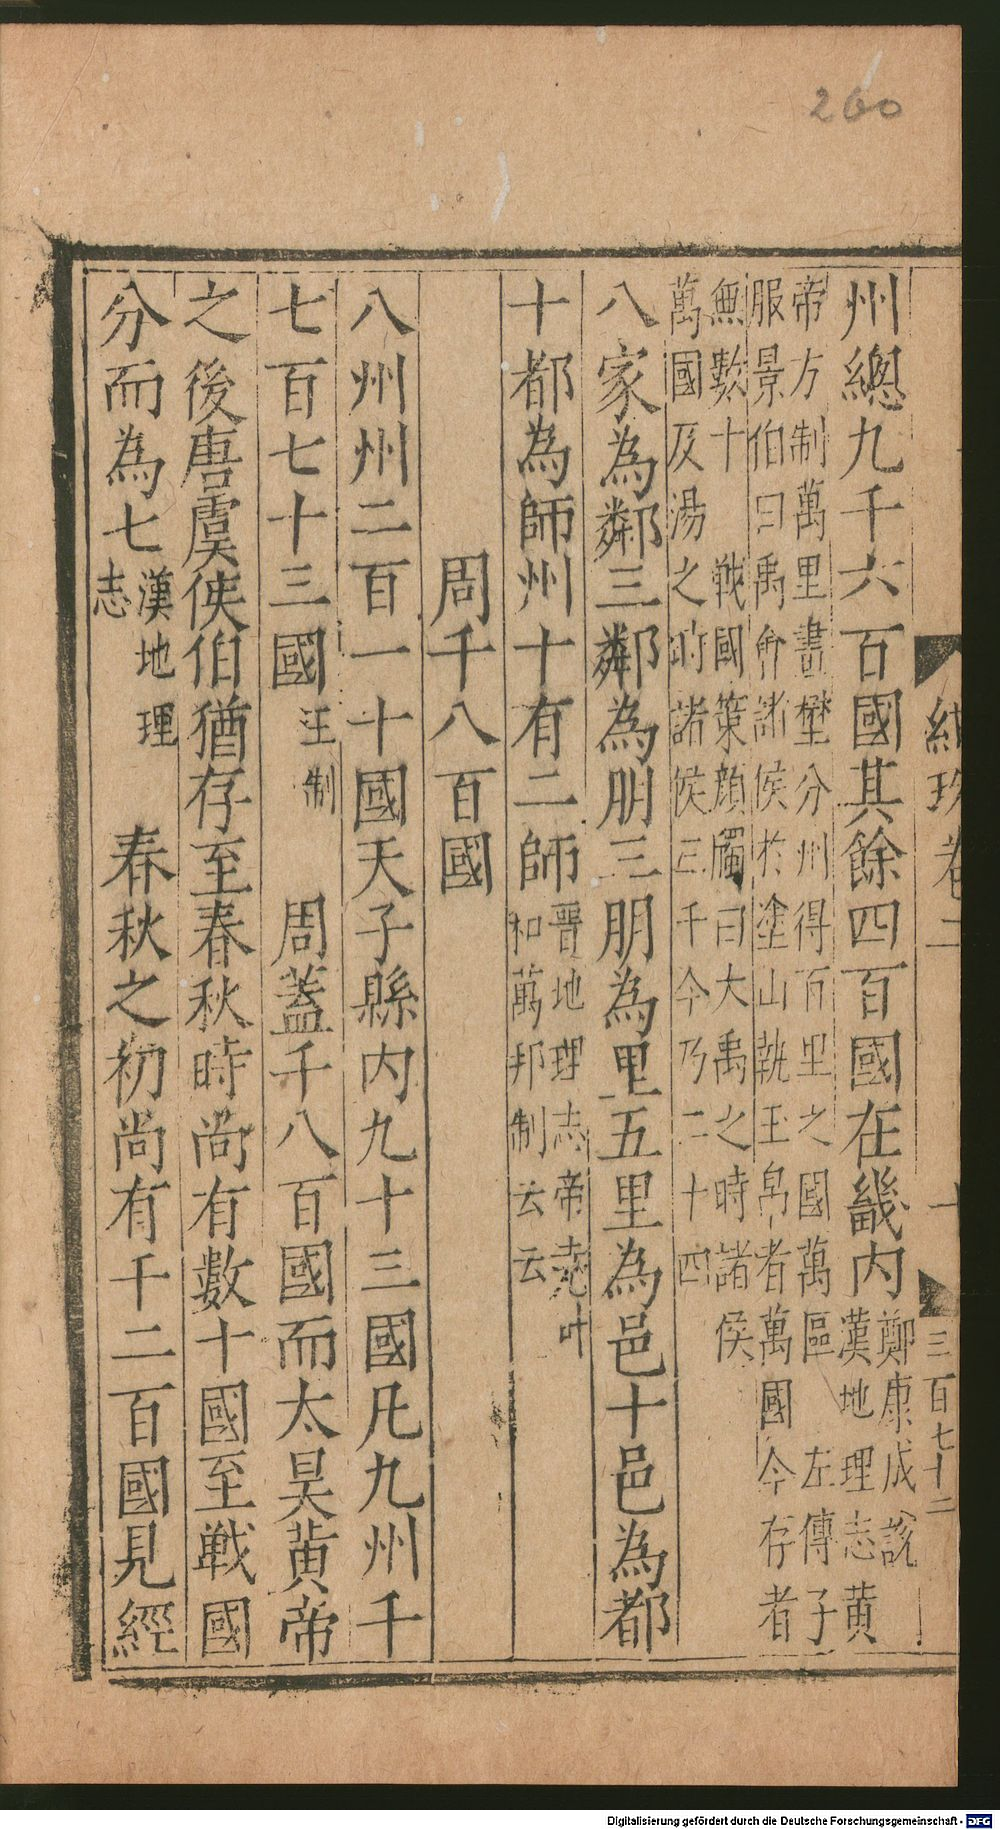 260
州緫九千六百國其餘四百國在畿内鄭康成說
漢地理志黄
帝方制萬里畫壄分州得百里之國萬區 左傳子
服景伯曰禹會諸侯於塗山執玉帛者萬國今存者
無數十 戰國策顔斶曰大禹之時諸侯
萬國及湯之時諸侯三千今乃二十四
八家為鄰三鄰為朋三朋為里五里為邑十邑為都
十都為師州十有二師晉地理志帝堯叶
和萬邦制云云
周千八百國
八州州二百一十國天子縣内九十三國凡九州千
七百七十三國王制 周蓋千八百國而太昊黄帝
之後唐虞侯伯猶存至春秋時尚有數十國至戰國
分而為七漢地理
志 春秋之初尚有千二百國見經
卷二
十
三百七十二
Digitalisierung gefördert durch die Deutsche Forschungsgemeinschaft - DFG